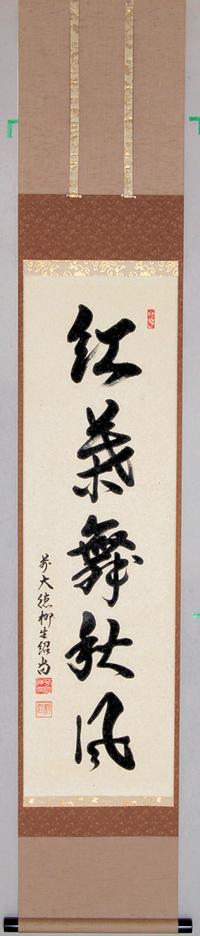 紅葉舞秋風
前大徳柳生紹尚